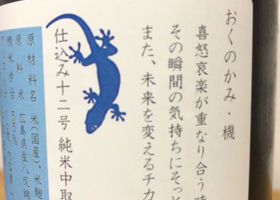 おくのかみ・機
喜怒哀楽が重なり合う時
その瞬間の気持ちにそっと
また、未来を変えるチカ
仕込み十二号 純米中取
原材料名 米(国産)、米麹
原料米 広島県産八反錦
精米歩合